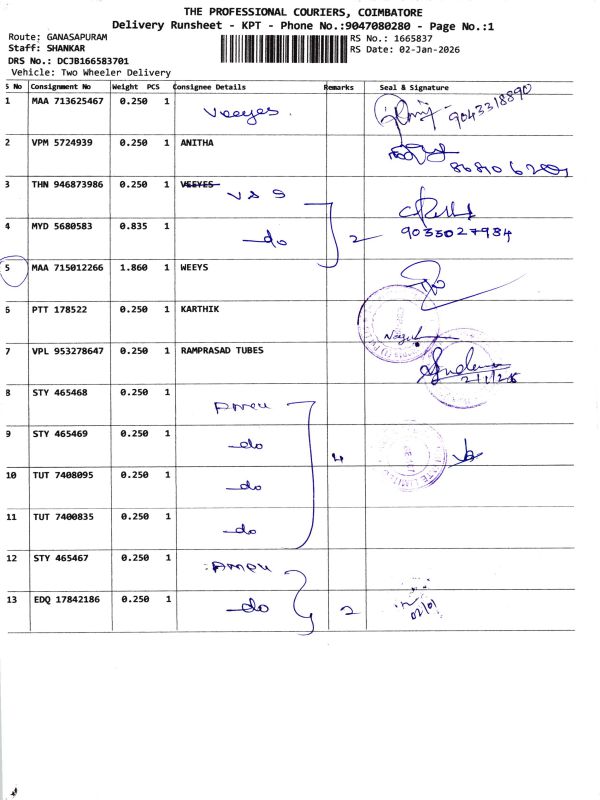 THE PROFESSIONAL COURIERS, COIMBATORE
Delivery Runsheet - KPT - Phone No.:9047080280 - Page No.:1
Route: GANASAPURAM
RS No.: 1665837
Staff: SHANKAR
RS Date: 02-Jan-2026
DRS No.: DCJB166583701
Vehicle: Two Wheeler Delivery
S No Consignment No Weight PCS Consignee Details Remarks Seal & Signature
1 MAA 713625467 0.250 1 Veeyes. 9043318890
2 VPM 5724939 0.250 1 ANITHA
3 THN 946873986 0.250 1 VEEYES V S S
4 MYD 5680583 0.835 1 do 2 9035027984
5 MAA 715012266 1.860 1 WEEYS
6 PTT 178522 0.250 1 KARTHIK
7 VPL 953278647 0.250 1 RAMPRASAD TUBES 2/1/26
8 STY 465468 0.250 1 pmeu
9 STY 465469 0.250 1 do 4
10 TUT 7408095 0.250 1 do
11 TUT 7400835 0.250 1 do
12 STY 465467 0.250 1 pmeu
13 EDQ 17842186 0.250 1 do 2 02/01